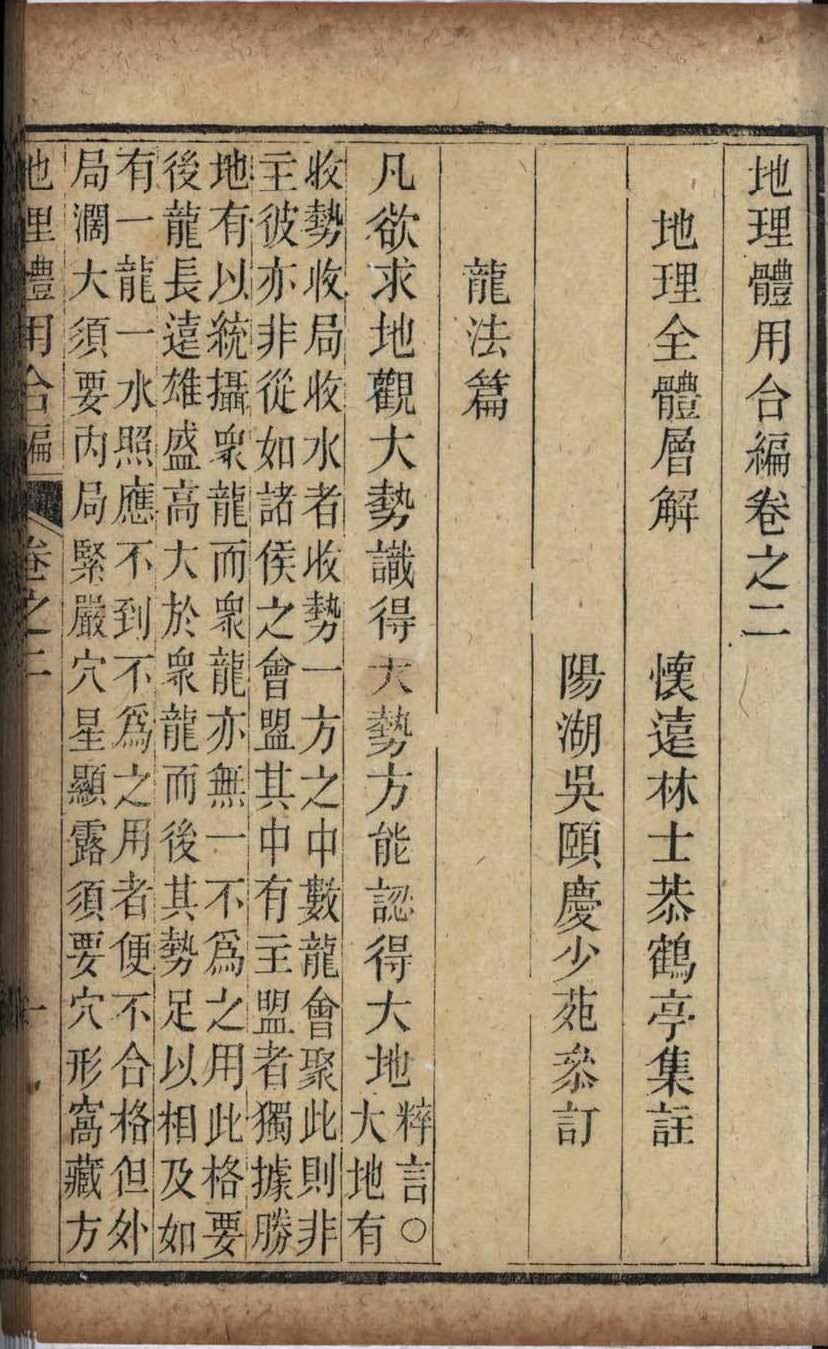 地理體用合編卷之二
地理全體層解　懷遠林士恭鶴亭集註
陽湖吳頤慶少苑叅訂
龍法篇
凡欲求地觀大勢識得大勢方能認得大地
粹言○
大地有
收勢收局收水者收勢一方之中數龍會聚此則非
主彼亦非從如諸侯之會盟其中有主盟者獨據勝
地有以統攝衆龍而衆龍亦無一不爲之用此格要
後龍長遠雄盛高大於衆龍而後其勢足以相及如
有一龍一水照應不到不爲之用者便不合格但外
局濶大須要內局緊嚴穴星顯露須要穴形窩藏方
地理體用合編　卷之二　一